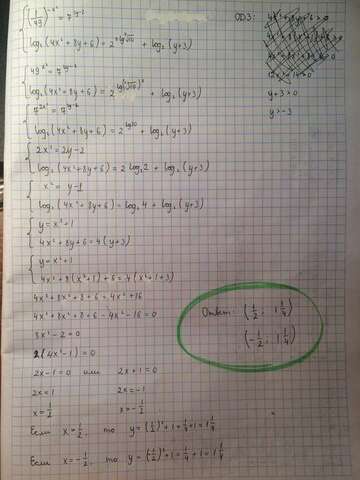 (1/49)^(-x²) = 7^(2y-2)
log₂(4x²+8y+6) = 2
+ log₂(y+3)
ОДЗ:
49^(x²) = 7^(2y-2)
log₂(4x²+8y+6) = 2
+ log₂(y+3)
y+3>0
y>-3
7^(2x²) = 7^(2y-2)
log₂(4x²+8y+6) = 2
+ log₂(y+3)
2x² = 2y-2
log₂(4x²+8y+6) = 2 log₂2 + log₂(y+3)
x² = y-1
log₂(4x²+8y+6) = log₂4 + log₂(y+3)
y = x²+1
4x²+8y+6 = 4(y+3)
y = x²+1
4x²+8(x²+1)+6 = 4(x²+1+3)
4x²+8x²+8+6 = 4x²+16
4x²+8x²+8+6-4x²-16=0
8x²-2=0
2(4x²-1)=0
2x-1=0 или 2x+1=0
2x=1 2x=-1
x=1/2 x=-1/2
Если x=1/2, то y=(1/2)²+1=1/4+1=1 1/4
Если x=-1/2, то y=(-1/2)²+1=1/4+1=1 1/4
Ответ: (1/2; 1 1/4)
(-1/2; 1 1/4)